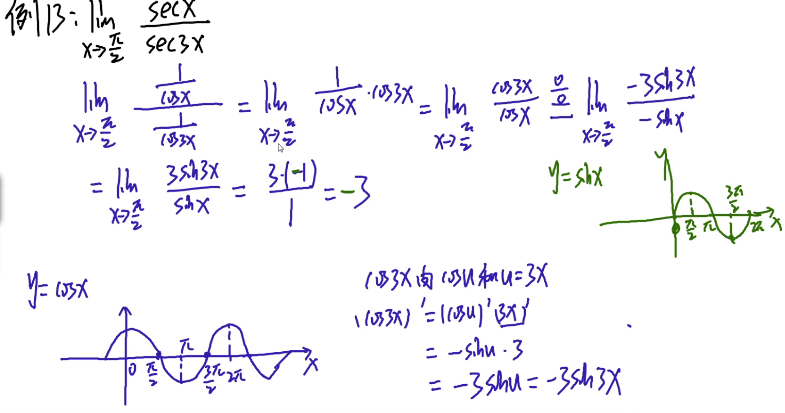 例13: lim x→π/2 secx/sec3x
lim x→π/2 (1/cosx)/(1/cos3x) = lim x→π/2 1/cosx · cos3x = lim x→π/2 cos3x/cosx 0/0= lim x→π/2 -3sin3x/-sinx
= lim x→π/2 3sin3x/sinx = 3·(-1)/1 = -3
y=sinx
y
0 π/2 π 3π/2 2π x
y=cosx
0 π/2 π 3π/2 2π x
cos3x由cosu和u=3x
(cos3x)'=(cosu)'(3x)'
= -sinu·3
= -3sinu = -3sin3x